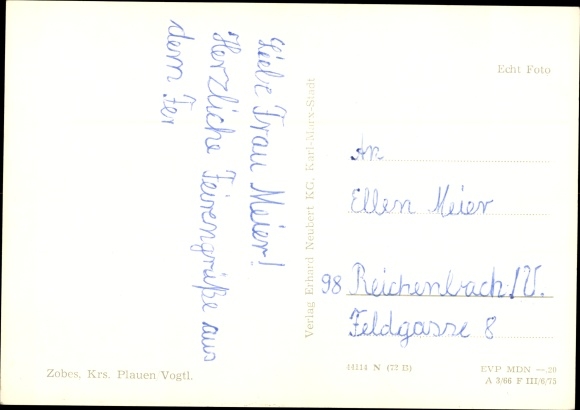 Liebe Frau Meier!
Herzliche Feirengrüße aus
dem Fer
Echt Foto
An
Ellen Meier
98 Reichenbach/V.
Feldgasse 8
Verlag Erhard Neubert KG, Karl-Marx-Stadt
Zobes, Krs. Plauen Vogtl.
14114 N (72 15)
EVP MDN —.20
A 3/66 F III/6/75